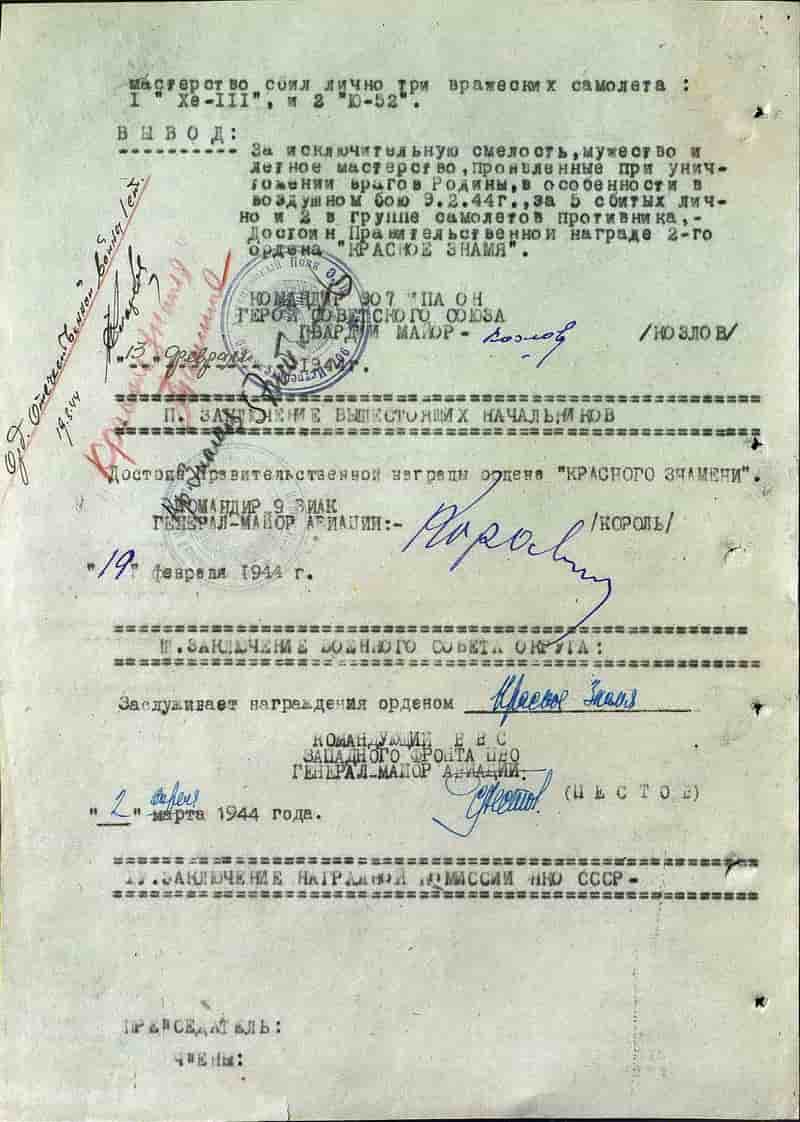 мастерство сбил лично три вражеских самолета :
I " Хе-III", и 2 "Ю-52".
ВЫВОД:
За исключительную смелость,мужество и
летное мастерство,проявленные при унич-
тожении врагов Родины,в особенности в
воздушном бою 9.2.44г.,за 5 сбитых лич-
но и 2 в группе самолетов противника,-
Достоин Правительственной награде 2-го
ордена "КРАСНОЕ ЗНАМЯ".
Орд. Отечественной войны I ст.
19.5.44
КОМАНДИР 907 ИАП ОН
ГЕРОЙ СОВЕТСКОГО СОЮЗА
ГВАРДИИ МАЙОР- Козлов /КОЗЛОВ/
"15" февраля 1944г.
П. ЗАКЛЮЧЕНИЕ ВЫШЕСТОЯЩИХ НАЧАЛЬНИКОВ
Достоин Правительственной награды ордена "КРАСНОГО ЗНАМЕНИ".
КОМАНДИР 9 ВИАК
ГЕНЕРАЛ-МАЙОР АВИАЦИИ:- /КОРОЛЬ/
"19" февраля 1944 г.
Ш.ЗАКЛЮЧЕНИЕ ВОЕННОГО СОВЕТА ОКРУГА:
Заслуживает награждения орденом Красное Знамя
КОМАНДУЮЩИЙ ВВС
ЗАПАДНОГО ФРОНТА ПВО
ГЕНЕРАЛ-МАЙОР АВИАЦИИ.
(ПЕСТОВ)
"2" апреля марта 1944 года.
IУ.ЗАКЛЮЧЕНИЕ НАГРАДНОЙ КОМИССИИ НКО СССР-
ПРЕДСЕДАТЕЛЬ:
ЧЛЕНЫ: